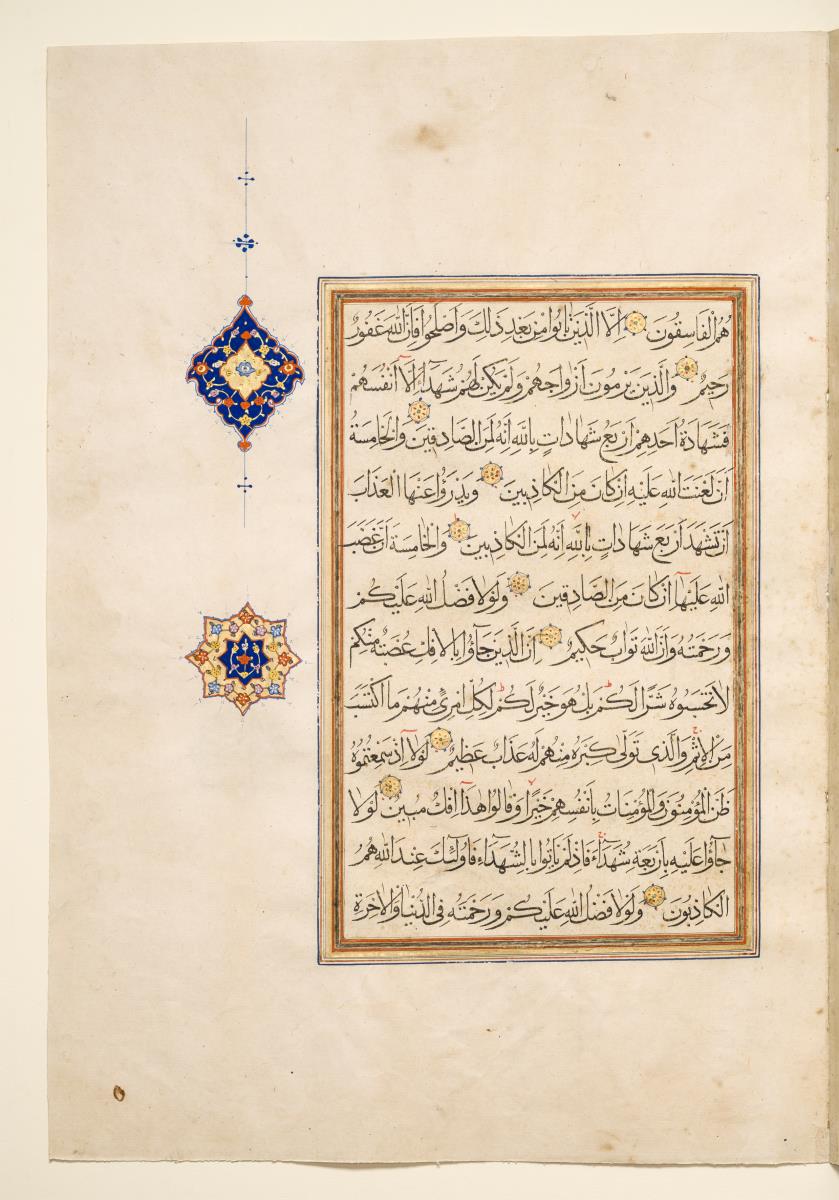 هُمُ الْفَاسِقُونَ اِلَّا الَّذِينَ تَابُوا مِنْ بَعْدِ ذٰلِكَ وَاَصْلَحُوا فَاِنَّ اللّٰهَ غَفُورٌ
رَحِيمٌ وَالَّذِينَ يَرْمُونَ اَزْوَاجَهُمْ وَلَمْ يَكُنْ لَهُمْ شُهَدَآءُ اِلَّا اَنْفُسُهُمْ
فَشَهَادَةُ اَحَدِهِمْ اَرْبَعُ شَهَادَاتٍ بِاللّٰهِ اِنَّهُ لَمِنَ الصَّادِقِينَ وَالْخَامِسَةُ
اَنَّ لَعْنَتَ اللّٰهِ عَلَيْهِ اِنْ كَانَ مِنَ الْكَاذِبِينَ وَيَدْرَؤُا عَنْهَا الْعَذَابَ
اَنْ تَشْهَدَ اَرْبَعَ شَهَادَاتٍ بِاللّٰهِ اِنَّهُ لَمِنَ الْكَاذِبِينَ وَالْخَامِسَةَ اَنَّ غَضَبَ
اللّٰهِ عَلَيْهَا اِنْ كَانَ مِنَ الصَّادِقِينَ وَلَوْلَا فَضْلُ اللّٰهِ عَلَيْكُمْ
وَرَحْمَتُهُ وَاَنَّ اللّٰهَ تَوَّابٌ حَكِيمٌ اِنَّ الَّذِينَ جَآؤُا بِالْاِفْكِ عُصْبَةٌ مِنْكُمْ
لَا تَحْسَبُوهُ شَرًّا لَكُمْ بَلْ هُوَ خَيْرٌ لَكُمْ لِكُلِّ امْرِئٍ مِنْهُمْ مَا اكْتَسَبَ
مِنَ الْاِثْمِ وَالَّذِى تَوَلّٰى كِبْرَهُ مِنْهُمْ لَهُ عَذَابٌ عَظِيمٌ لَوْلَآ اِذْ سَمِعْتُمُوهُ
ظَنَّ الْمُؤْمِنُونَ وَالْمُؤْمِنَاتُ بِاَنْفُسِهِمْ خَيْرًا وَقَالُوا هٰذَآ اِفْكٌ مُبِينٌ لَوْلَا
جَآؤُا عَلَيْهِ بِاَرْبَعَةِ شُهَدَآءَ فَاِذْ لَمْ يَاْتُوا بِالشُّهَدَآءِ فَاُولٰٓئِكَ عِنْدَ اللّٰهِ هُمُ
الْكَاذِبُونَ وَلَوْلَا فَضْلُ اللّٰهِ عَلَيْكُمْ وَرَحْمَتُهُ فِى الدُّنْيَا وَالْاٰخِرَةِ